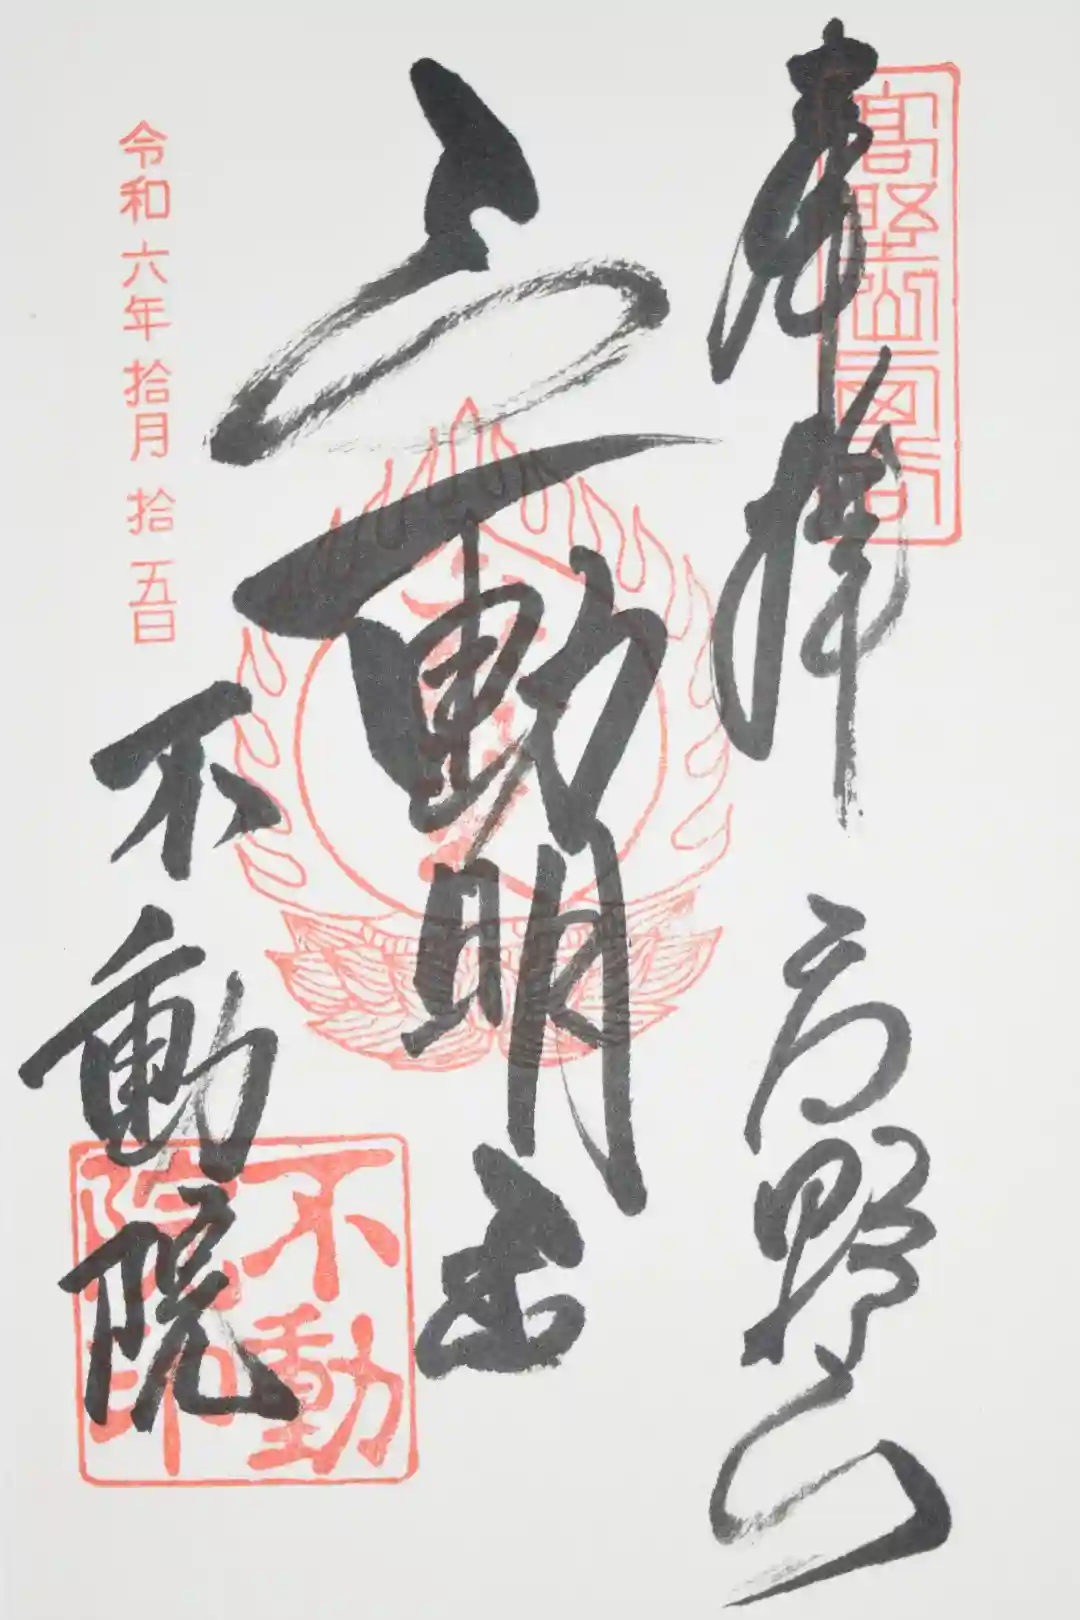 奉拝 高野山
不動明王
令和六年拾月拾五日
不動院
不動
院印